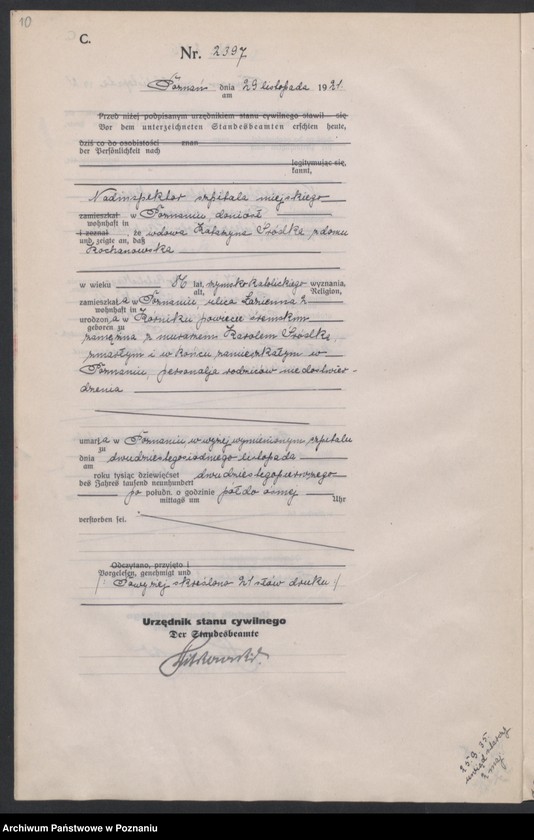 10
C.
Nr. 2397
Poznań dnia 29 listopada 1921.
am
Przed niżej podpisanym urzędnikiem stanu cywilnego stawił się
Vor dem unterzeichneten Standesbeamten erschien heute,
dziś co do osobistości znan
der Persönlichkeit nach
legitymując się,
kannt,
Nadinspektor szpitala miejskiego
zamieszkał w Poznaniu, doniósł
wohnhaft in
i zeznał, że wdowa Katarzyna Śródka z domu
und zeigte an, daß
Kochanowska
w wieku lat, rzymsko katolickiego wyznania,
alt, Religion,
zamieszkała w Poznaniu, ulica Łazienna 2
wohnhaft in
urodzona w Kórniku powiecie śremskim
geboren zu
zamężna z murarzem Karolem Śródką,
zmarłym i w końcu zamieszkałym w
Poznaniu, personalja rodziców nie dostwier-
dzenia
umarła w Poznaniu w wyżej wymienionym szpitalu
zu
dnia dwudziestego siódmego listopada
am
roku tysiąc dziewięćset dwudziestego pierwszego
des Jahres tausend neunhundert
po połudn. o godzinie pół do ósmej
mittags um Uhr
verstorben sei.
Odczytano, przyjęto i
Vorgelesen, genehmigt und
Powyżej skreślono 21 słów druku
Urzędnik stanu cywilnego
Der Standesbeamte
25.9.35.
Archiwum Państwowe w Poznaniu